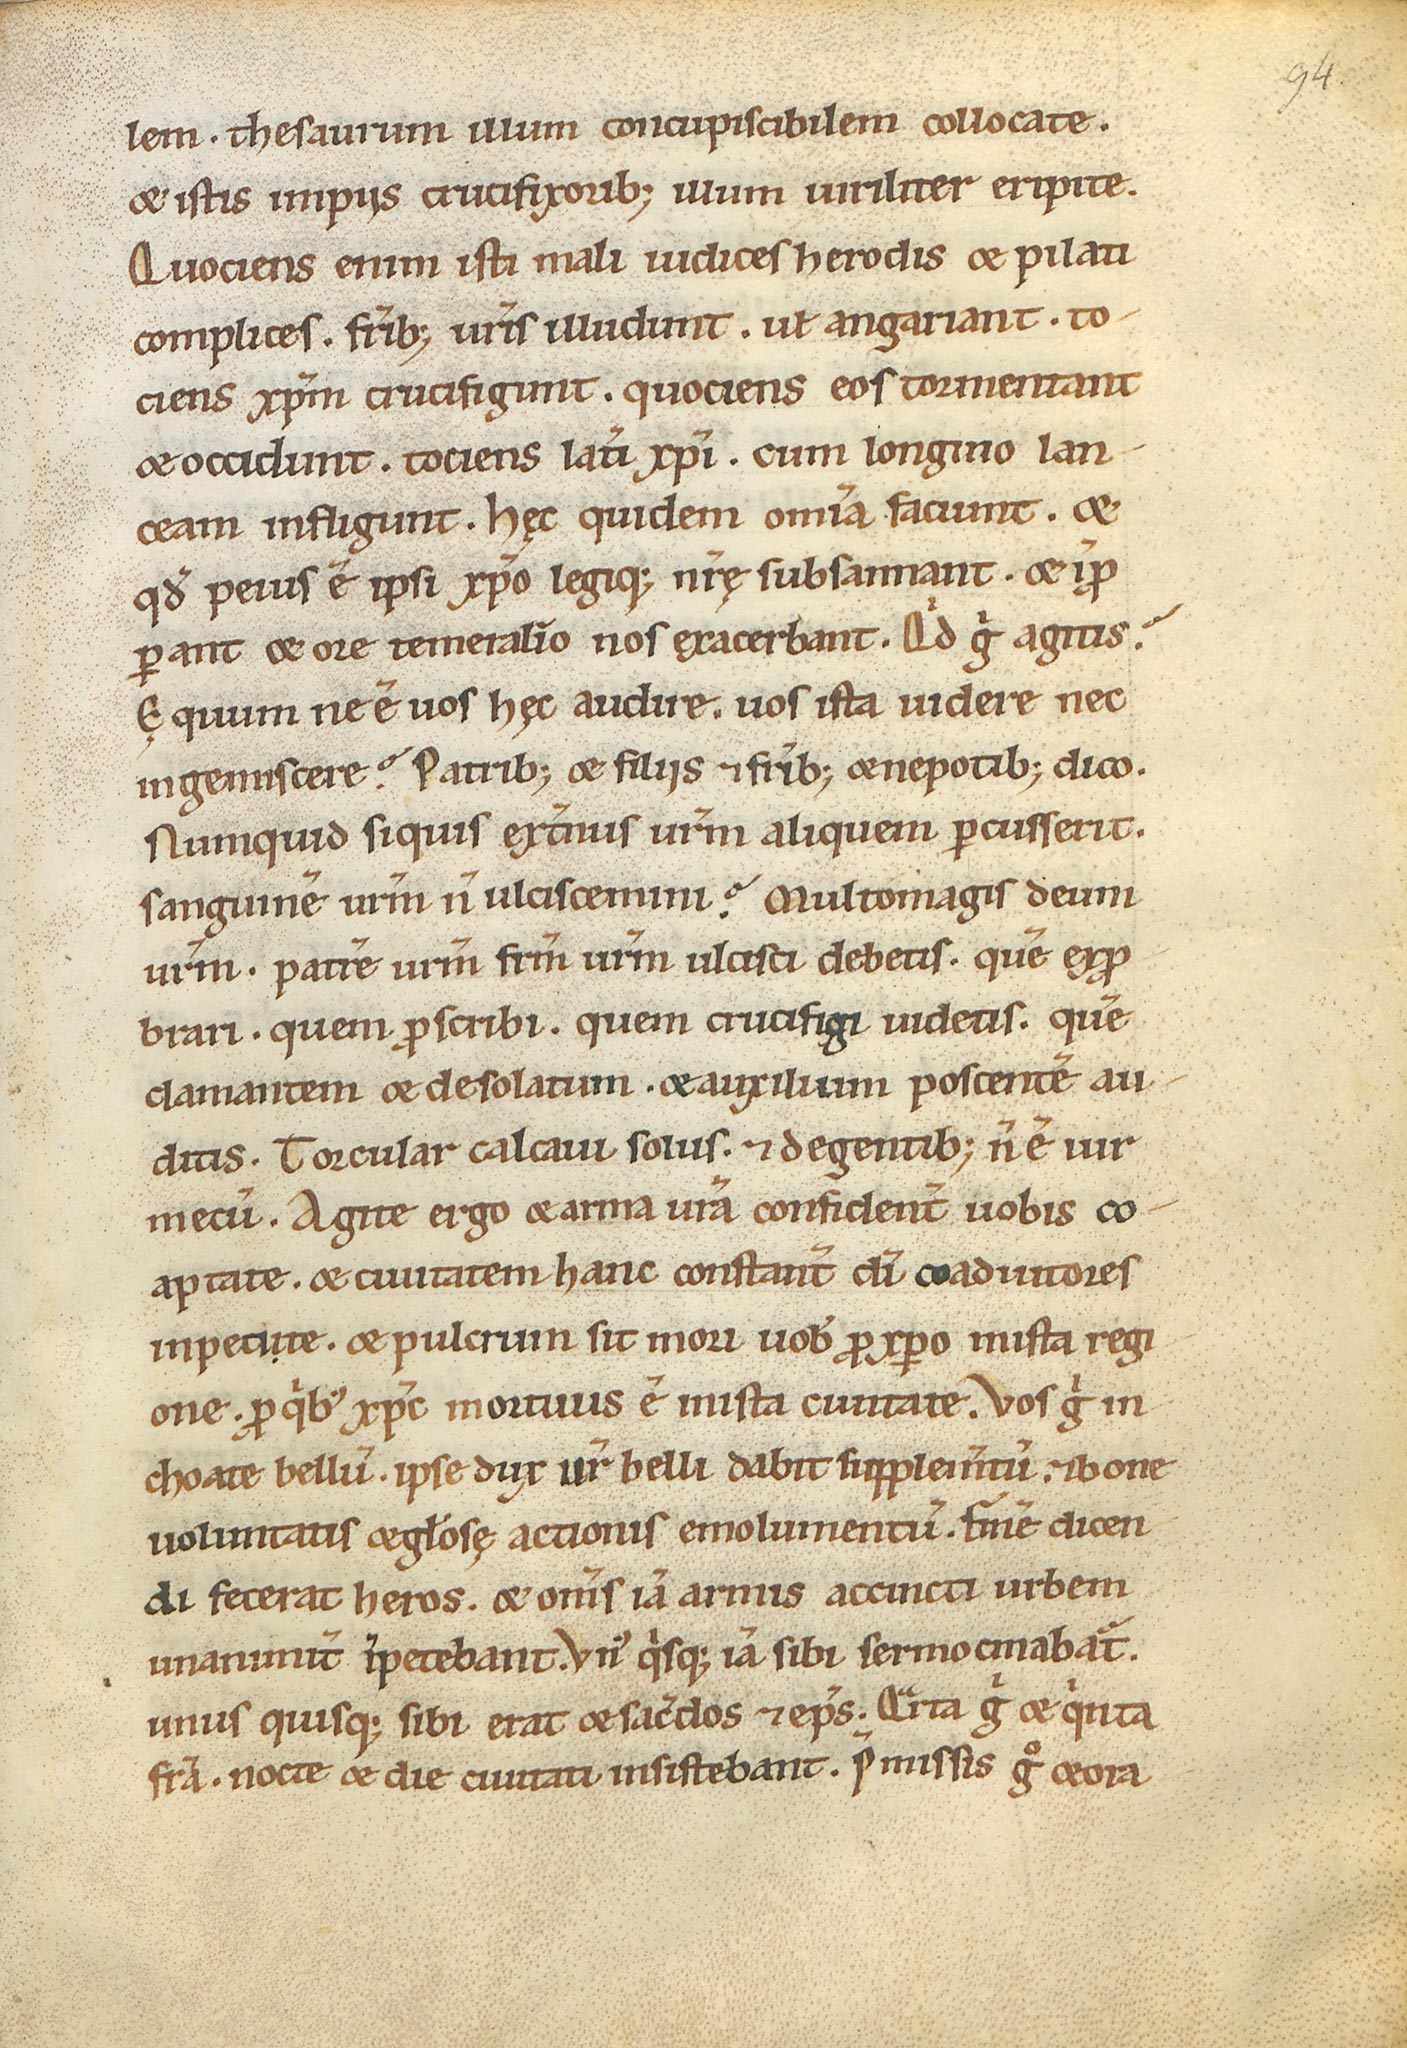 94.
lem . thesaurum illum concupiscibilem collocate .
& istis impiis crucifixorib; illum uiriliter eripite .
Quociens enim isti mali iudices herodis & pilati
complices . fr̄ib; ur̄is illudunt . ut̄ angariant . to-
ciens xp̄m crucifigunt . quociens eos tormentant
& occidunt . tociens lat̄i xp̄i . cum longino lan-
ceam infligunt . hęc quidem om̄ia faciunt . &
qđ peius ē ipsi xp̄o legiq; nr̄ę subsannant . & īꝓ
ꝑant & ore temerario nos exacerbant . Qͥd gͥ agitis?
Ęquum ne ē uos hęc audire . uos ista uidere nec
ingemiscere? Patrib; & filiis ⁊ fr̄ib; & nepotib; dico .
Numquid siquis ext̄nus ur̄m aliquem ꝑcusserit .
sanguinē ur̄m n̄ ulciscemini? Multo magis deum
ur̄m . patrē ur̄m fr̄m ur̄m ulcisci debetis . quē exꝓ
brari . quem ꝓscribi . quem crucifigi uidetis . quē
clamantem & desolatum . & auxilium poscentē au-
ditis . Torcular calcaui solus . ⁊ de gentib; n̄ ē uir
mecū . Agite ergo & arma ur̄a confident̄ uobis co-
aptate . & ciuitatem hanc constant̄ dī coadiutores
inpetite . & pulcrum sit mori uob̄ ꝓ xp̄o in ista regi
one . ꝓ qͥbꝰ xp̄c mortuus ē in ista ciuitate . Vos gͥ in-
choate bellū . ipse dux ur̄ belli dabit supplem̄tū . ⁊ bone
uoluntatis & gło̅sę actionis emolumentū . finē dicen
di fecerat heros . & om̄s iā armis accincti urbem
unanimit̄ īpetebant . Vn̄ꝰ qͥsq; iā sibi sermocinabat̄ .
unus quisq; sibi erat & sac̄dos ⁊ ep̄s . Qͣrta gͥ & qͥnta
fr̄a . nocte & die ciuitati insistebant . P̄missis gͦ & ora